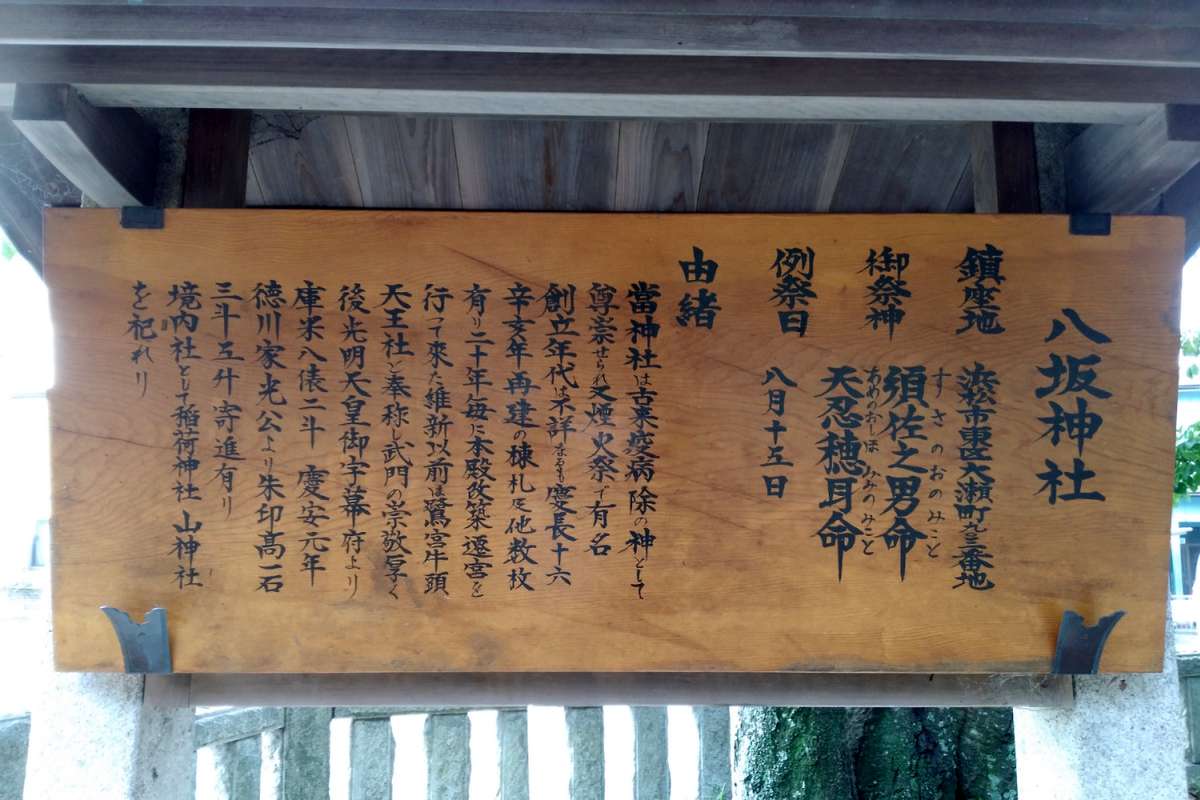 八坂神社
鎮座地 浜松市東区大瀬町九三二番地
御祭神 須佐之男命
すさのおのみこと
天忍穂耳命
あめのおしほみみのみこと
例祭日 八月十五日
由緒
當神社は古来疫病除の神として
尊崇せられ又煙火祭で有名
創立年代は不詳なるも慶長十六
辛亥年再建の棟札及他数枚
有り二十年毎に本殿改築遷宮を
行って來た維新以前は鷺宮牛頭
天王社と奉称し武門の崇敬厚く
後光明天皇御宇幕府より
庫米八俵二斗 慶安元年
徳川家光公より朱印高一石
三斗五升 寄進有り
境内社として稲荷神社 山神社
を祀れり